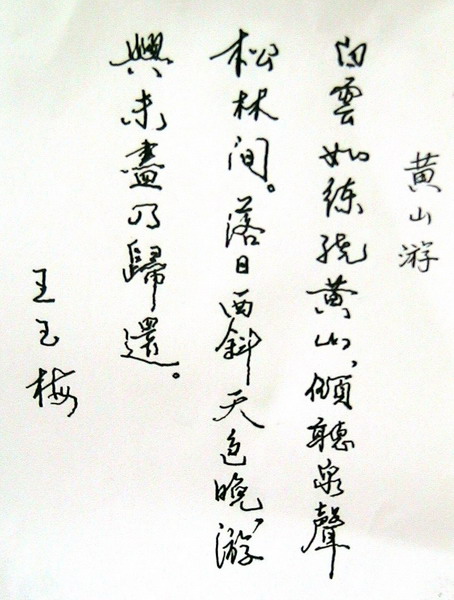 黄山游
白雲如练绕黄山，傾聽泉聲
松林间。落日西斜天色晚，游
興未盡乃歸還。
王玉梅